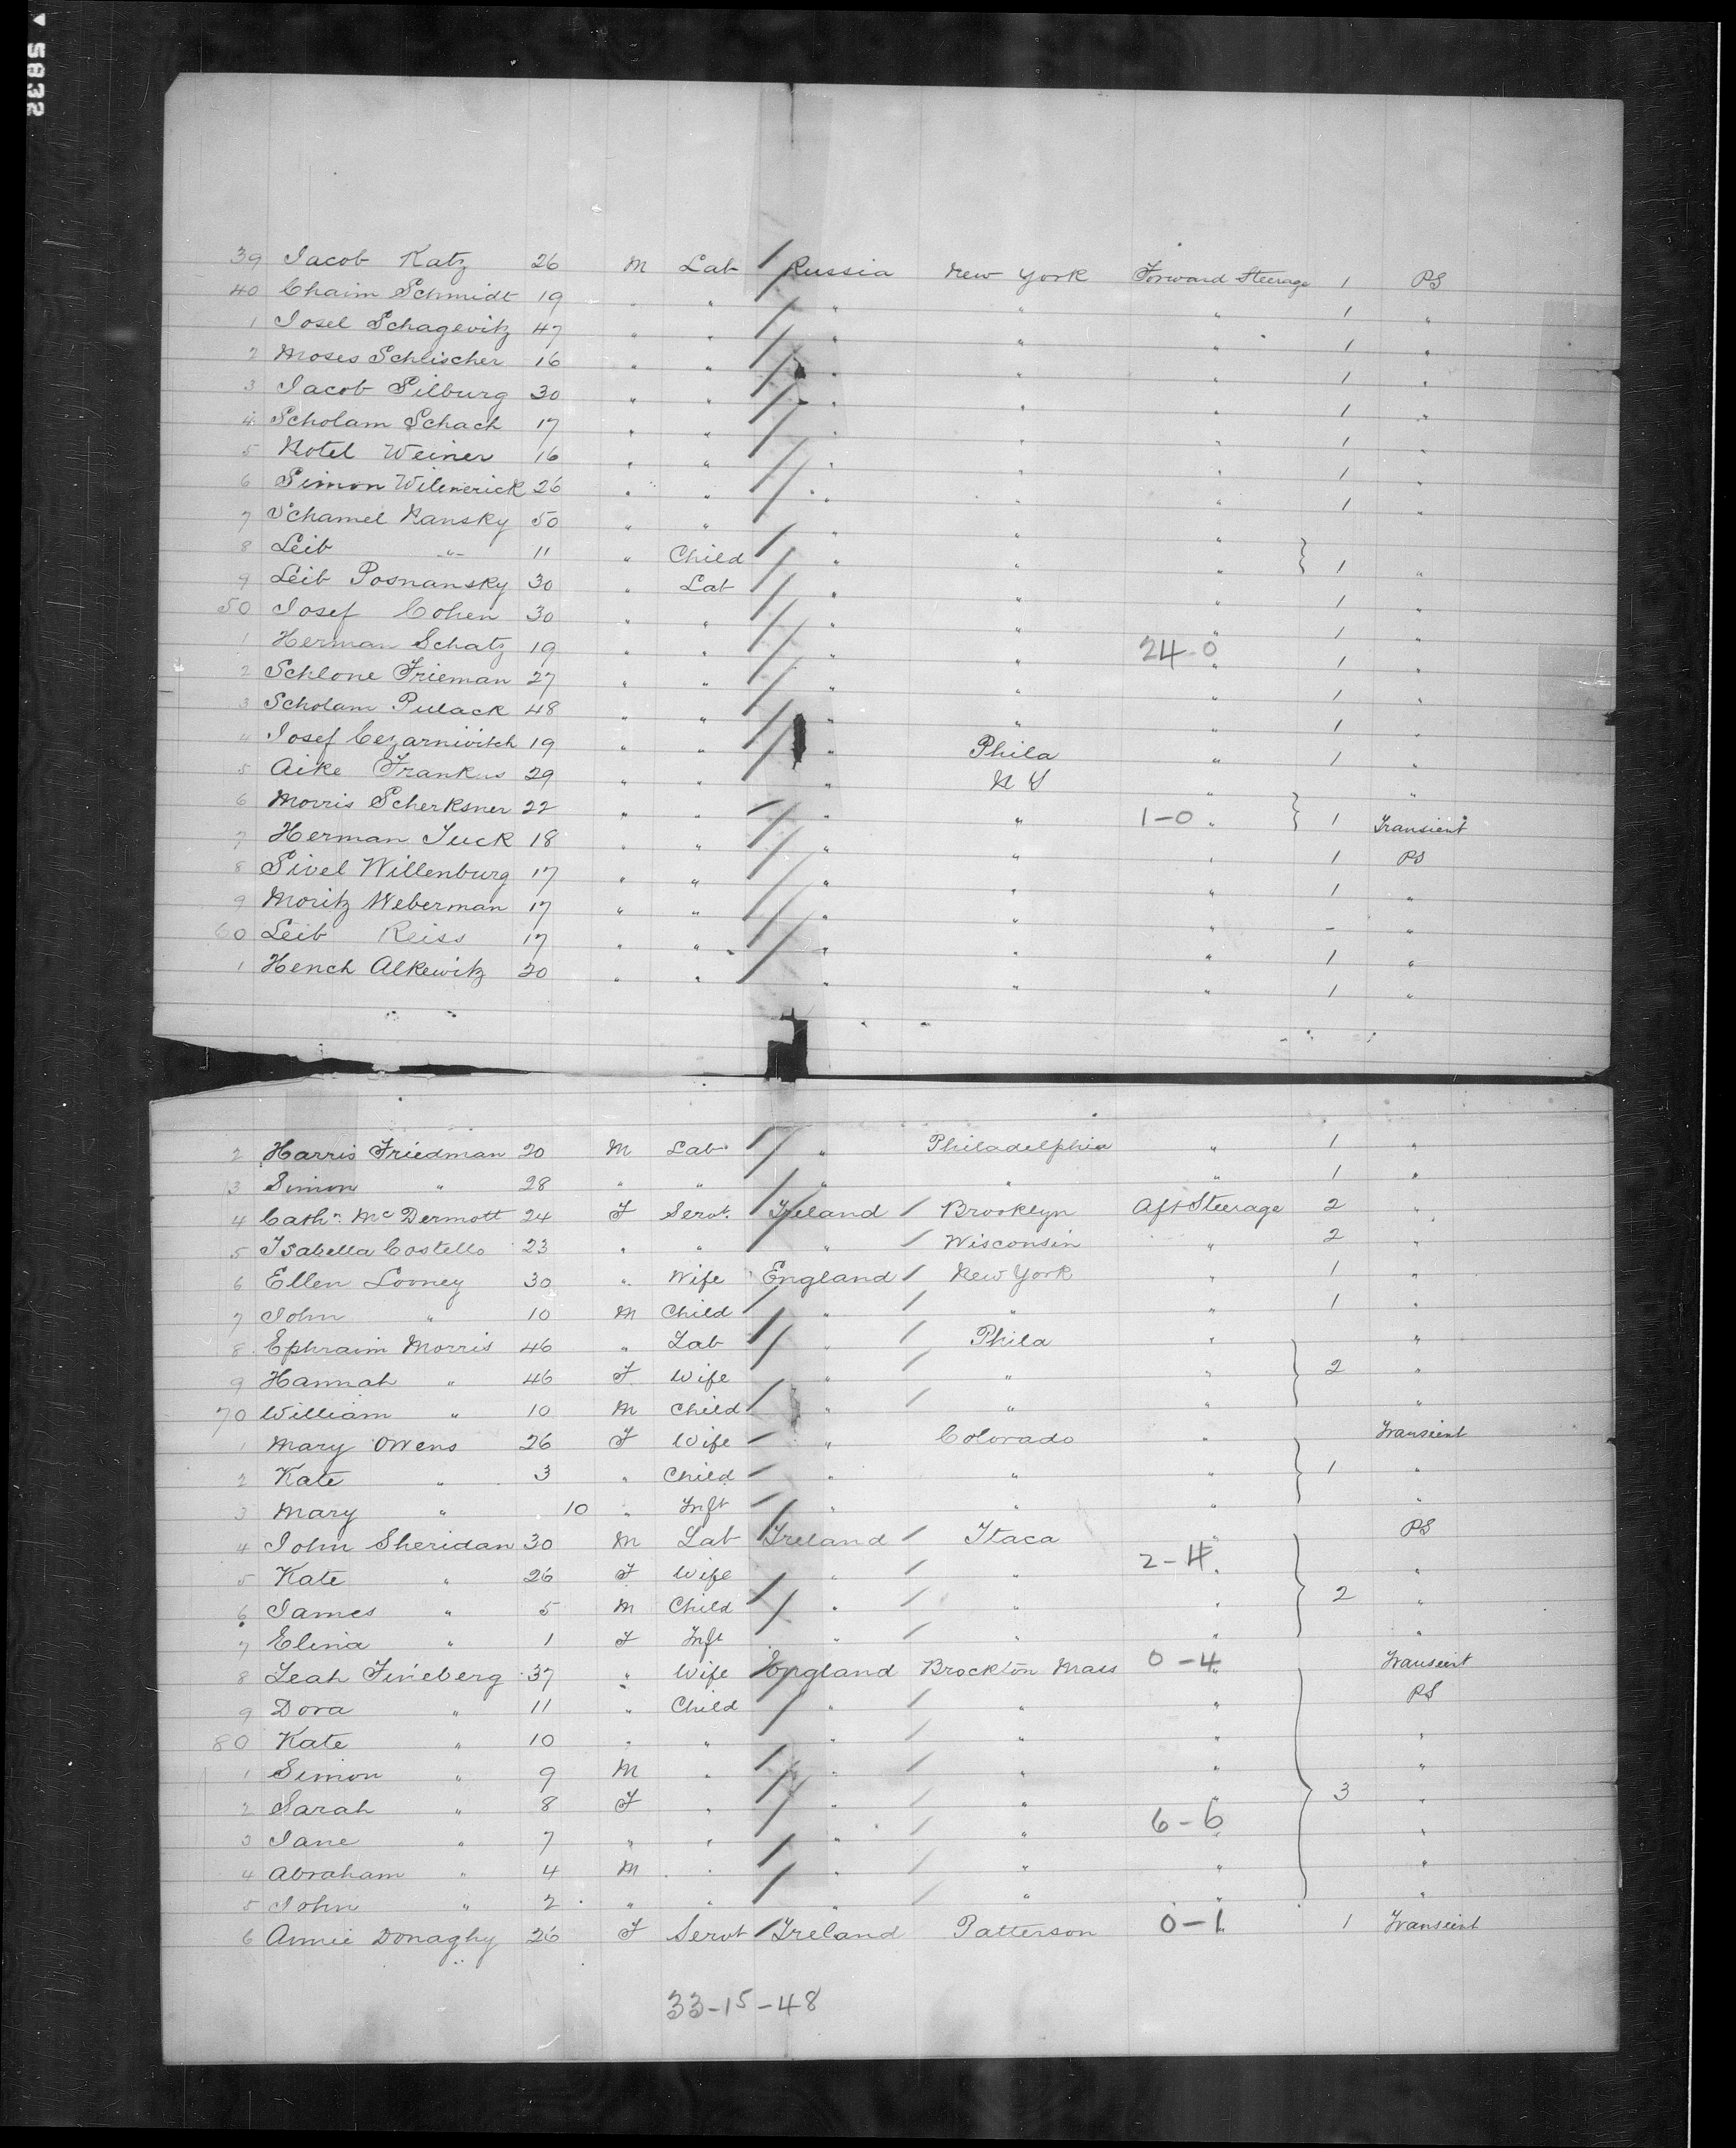 5832
39 Jacob Katz 26 M Lab Russia New York Forward Steerage 1 PS
40 Chaim Schmidt 19 " " " " " 1 "
1 Josel Schagevitz 47 " " " " " 1 "
2 Moses Schlischer 16 " " " " " 1 "
3 Jacob Silburg 30 " " " " " 1 "
4 Scholam Schach 17 " " " " " 1 "
5 Notel Weiner 16 " " " " " 1 "
6 Simon 26 " " " " " 1 "
7 Schamel Kansky 50 " " " " "
8 Leib " 11 " Child " " " 1 "
9 Leib Posnansky 30 " Lab " " " 1 "
50 Josef Cohen 30 " " " " " 1 "
1 Herman Schatz 19 " " " " 24-0 " 1 "
2 Schlone Frieman 27 " " " " " 1 "
3 Scholam Pulack 48 " " " " " 1 "
4 Josef Cezarnivitch 19 " " " Phila " 1 "
5 Aike Frankus 29 " " " N Y " "
6 Morris Scherksner 22 " " " " 1-0 " 1 Transient
7 Herman Juck 18 " " " " " 1 PS
8 Sivel Willenburg 17 " " " " " 1 "
9 Moritz Weberman 17 " " " " " - "
60 Leib Reiss 17 " " " " " 1 "
1 Hench Alkewitz 20 " " " " " 1 "
2 Harris Friedman 20 M Lab " Philadelphia " 1 "
3 Simon " 28 " " " " " 1 "
4 Cathn McDermott 24 F Servt. Ireland / Brooklyn Aft Steerage 2 "
5 Isabella Costello 23 " " " / Wisconsin " 2 "
6 Ellen Looney 30 " Wife England / New York " 1 "
7 John " 10 M Child " / " " 1 "
8 Ephraim Morris 46 " Lab " / Phila " "
9 Hannah " 46 F Wife " / " " 2 "
70 William " 10 M Child " / " " "
1 Mary Owens 26 F Wife " Colorado " Transient
2 Kate " 3 " Child " " " 1 "
3 Mary " 10 " Inft " " " "
4 John Sheridan 30 M Lab Ireland / Itaca " PS
5 Kate " 26 F Wife " / " 2-4 " "
6 James " 5 M Child " / " " 2 "
7 Elina " 1 F Inft " / " " "
8 Leah Fineberg 37 " Wife England Brockton Mass 0-4 " Transient
9 Dora " 11 " Child " / " " PS
80 Kate " 10 " " " / " " "
1 Simon " 9 M " " / " " "
2 Sarah " 8 F " " / " " 3 "
3 Jane " 7 " " " / " 6-6 " "
4 Abraham " 4 M " " / " " "
5 John " 2 " " " / " " "
6 Annie Donaghy 26 F Servt Ireland Patterson 0-1 " 1 Transient
33-15-48